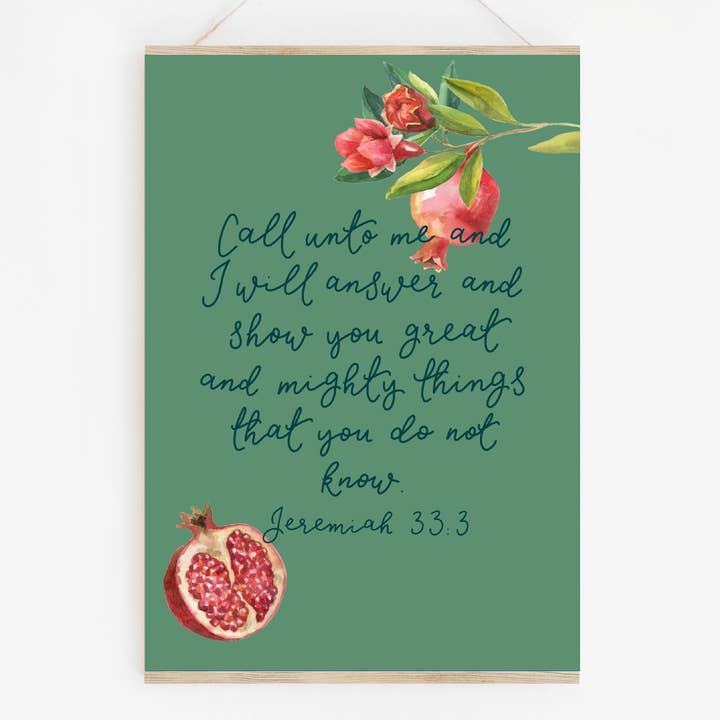 Call unto me and
I will answer and
show you great
and mighty things
that you do not
know.
Jeremiah 33:3